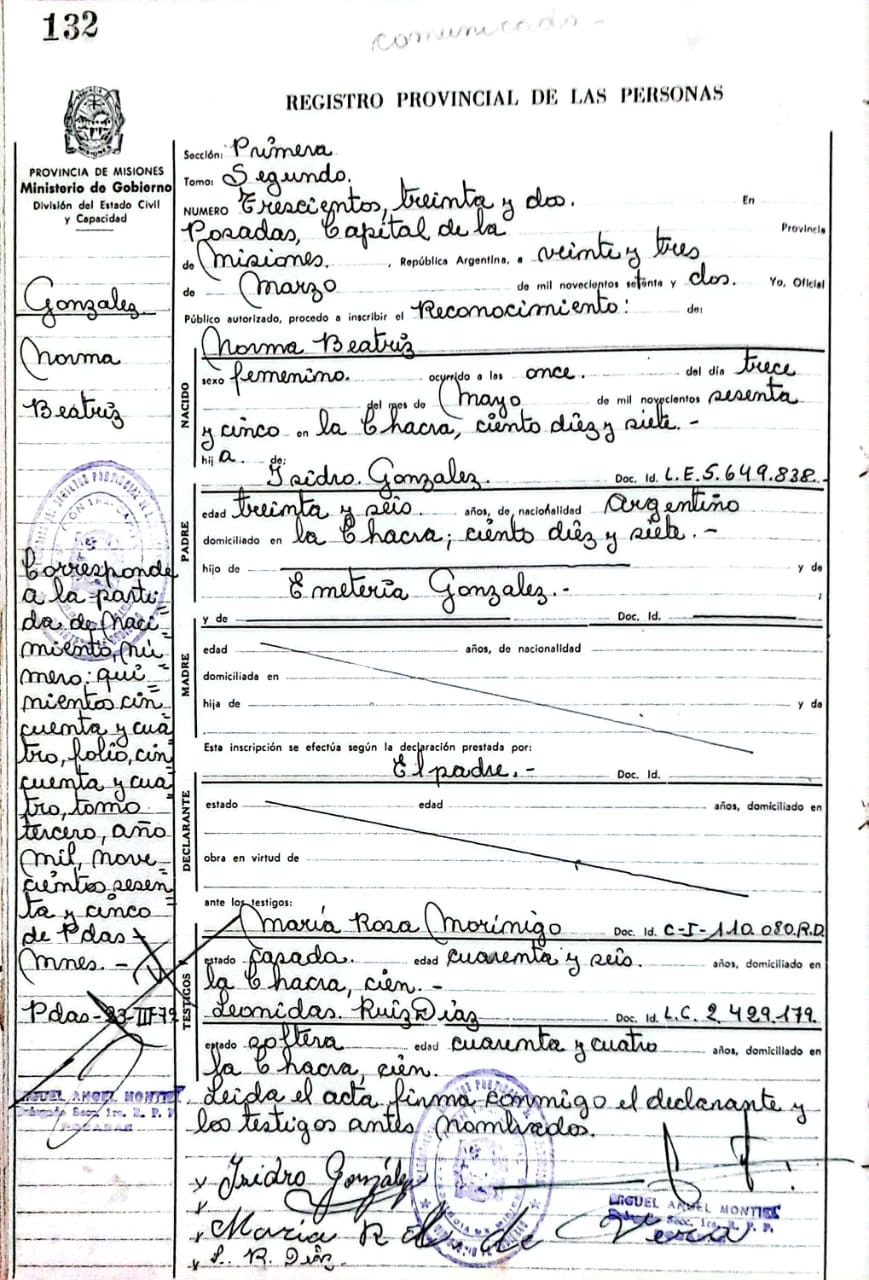 132
comunicado -
REGISTRO PROVINCIAL DE LAS PERSONAS
PROVINCIA DE MISIONES
Ministerio de Gobierno
División del Estado Civil
y Capacidad
Gonzalez
Norma
Beatriz
Corresponde
a la parti=
da de Naci=
miento, nú=
mero: qui=
nientos cin=
cuenta y cua=
tro, folio, cin=
cuenta y cua=
tro, tomo
tercero, año
mil, nove-
cientos sesen=
ta y cinco
de Pdas -
Mnes. -
Pdas - 23-III-72
MIGUEL ANGEL MONTIEL
Sección: Primera
Tomo: Segundo.
NUMERO Trescientos, treinta y dos. En
Posadas, Capital de la Provincia
de Misiones. , República Argentina, a veinte y tres
de Marzo de mil novecientos setenta y dos. Yo, Oficial
Público autorizado, procedo a inscribir el Reconocimiento: de:
NACIDO
Norma Beatriz
sexo femenino. ocurrido a las once. del día trece
del mes de Mayo de mil novecientos sesenta
y cinco en la Chacra, ciento diez y siete. -
hija. de:
Isidro. Gonzalez. Doc. Id. L.E. 5.649.838.-
PADRE
edad treinta y seis. años, de nacionalidad Argentino
domiciliado en la Chacra; ciento diez y siete. -
hijo de y de
Emeteria Gonzalez. -
MADRE
y de Doc. Id.
edad años, de nacionalidad
domiciliada en
hija de y de
Esta inscripción se efectúa según la declaración prestada por:
El padre. - Doc. Id.
DECLARANTE
estado edad años, domiciliado en
obra en virtud de
ante los testigos:
TESTIGOS
María Rosa Morinigo Doc. Id. C-I-110.080.R.D.
estado casada. edad cuarenta y seis. años, domiciliado en
la Chacra, cien. -
Leonidas. Ruiz Diaz Doc. Id. L.C. 2.429.179.
estado soltera edad cuarenta y cuatro años, domiciliado en
la Chacra, cien.
Leida el acta, firma conmigo el declarante y
los testigos antes nombrados.
Isidro González
MIGUEL ANGEL MONTIEL
María R de Vera
L. R. Díaz.